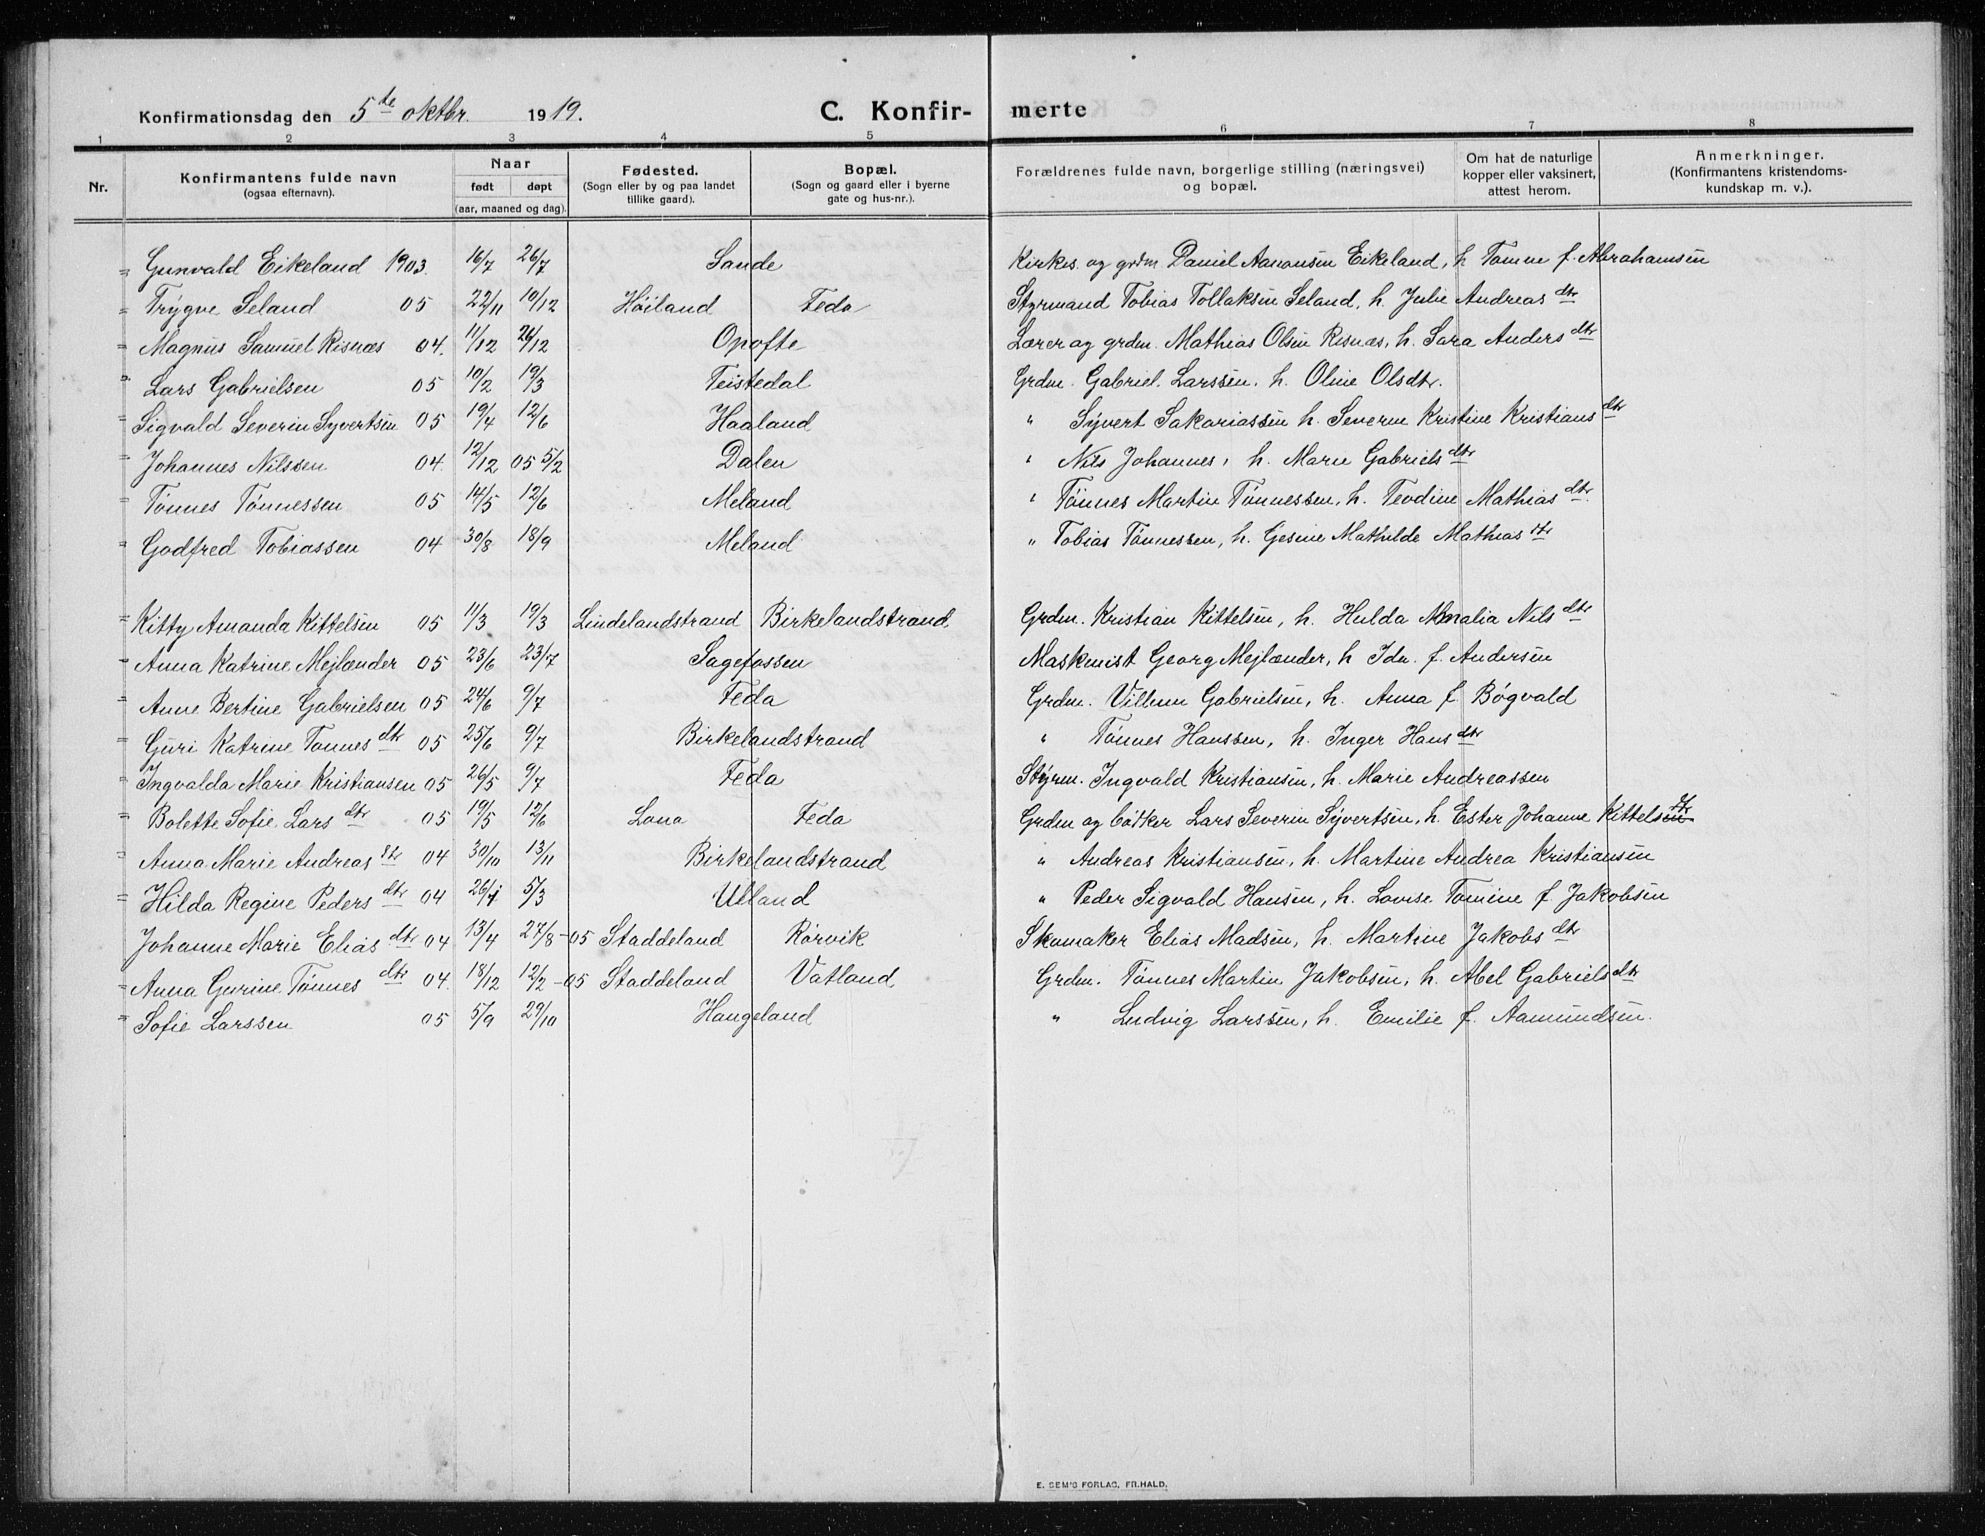 Konfirmationsdag den 5te oktbr. 1919. C. Konfirmerte
1 2 3 4 5 6 7 8
Nr. Konfirmantens fulde navn (ogsaa efternavn). Naar født døpt (aar, maaned og dag). Fødested. (Sogn eller by og paa landet tillike gaard). Bopæl. (Sogn og gaard eller i byerne gate og hus-nr.). Forældrenes fulde navn, borgerlige stilling (næringsvei) og bopæl. Om hat de naturlige kopper eller vaksinert, attest herom. Anmerkninger. (Konfirmantens kristendomskundskap m. v.).
= Gunvald Eikeland 1903. 16/7 26/7 Sande Kirkes. og grdm Daniel Aanonsen Eikeland, h. Tomne f. Abrahamsen
= Trygve Seland 05 22/11 10/12 Høiland Feda Styrmand Tobias Tollaksen Seland, h. Julie Andreas dtr
= Magnus Samuel Risnæs 04. 11/12 26/12 Opofte Lærer og grdm. Mathias Olsen Resnæs, h. Sara Anders dtr
" Lars Gabrielsen 05 10/2 19/3 Feistedal Grdm. Gabriel Larssen. h. Oline Olsdtr.
= Sigvald Severin Syvertsen 05 19/4 12/6 Haaland " Syvert Sakariassen h. Severine Kristine Kristians dtr
= Johannes Nilssen 04. 12/12 05 5/2 Dalen " Nils Johannes, h. Marie Gabriels dtr
= Tønnes Tønnessen 05 14/5 12/6 Meland " Tønnes Martin Tønnessen, h. Teodine Mathias dtr.
= Godfred Tobiassen 04 30/8 18/9 Meland " Tobias Tønnessen, h. Gesine Mathilde Mathias dtr
= Kitty Amanda Kittelsen 05 11/3 19/3 Lindelandstrand Birkelandstrand Grdm. Kristian Kittelsen, h. Hulda Amalia Nils dtr
= Anna Katrine Mejlænder 05 23/6 23/7 Sagefossen Maskinist Georg Mejlænder, h. Ida f. Andersen
= Anne Bertine Gabrielsen 05 24/6 9/7 Feda Grdm. Villum Gabrielsen, h. Anna f. Bøgvald
= Guri Katrine Tønnes dtr 05 25/6 9/7 Birkelandstrand " Tønnes Hanssen, h. Inger Hans dtr
= Ingvalda Marie Kristiansen 05 26/5 9/7 Feda Styrm. Ingvald Kristiansen, h. Marie Andreassen
= Bolette Sofie Lars dtr 05 19/5 12/6 Lona Feda Grdm og bødker Lars Severin Syvertsen, h. Ester Johanne Kittelsen dtr
= Anna Marie Andreas dtr 04 30/10 13/11 Birkelandstrand " Andreas Kristiansen, h. Martine Andrea Kristiansen
= Hilda Regine Peders dtr 04 26/1 5/3 Utland " Peder Sigvald Hansen, h. Lovise Tomine f. Jakobsen
Johanne Marie Elias dtr 04 13/4 27/8-05 Staddeland Rørvik Skomaker Elias Madsen, h. Martine Jakobs dtr
= Anna Gurine Tønnes dtr 04. 18/12 12/2-05 Staddeland Vatland Grdm. Tønnes Martin Jakobsen, h. Abel Gabriels dtr
= Sofie Larssen 05 5/9 29/10 Haugeland " Ludvig Larssen, h. Emilie f. Aamundsen.
E. SEM'S FORLAG, FR.HALD.